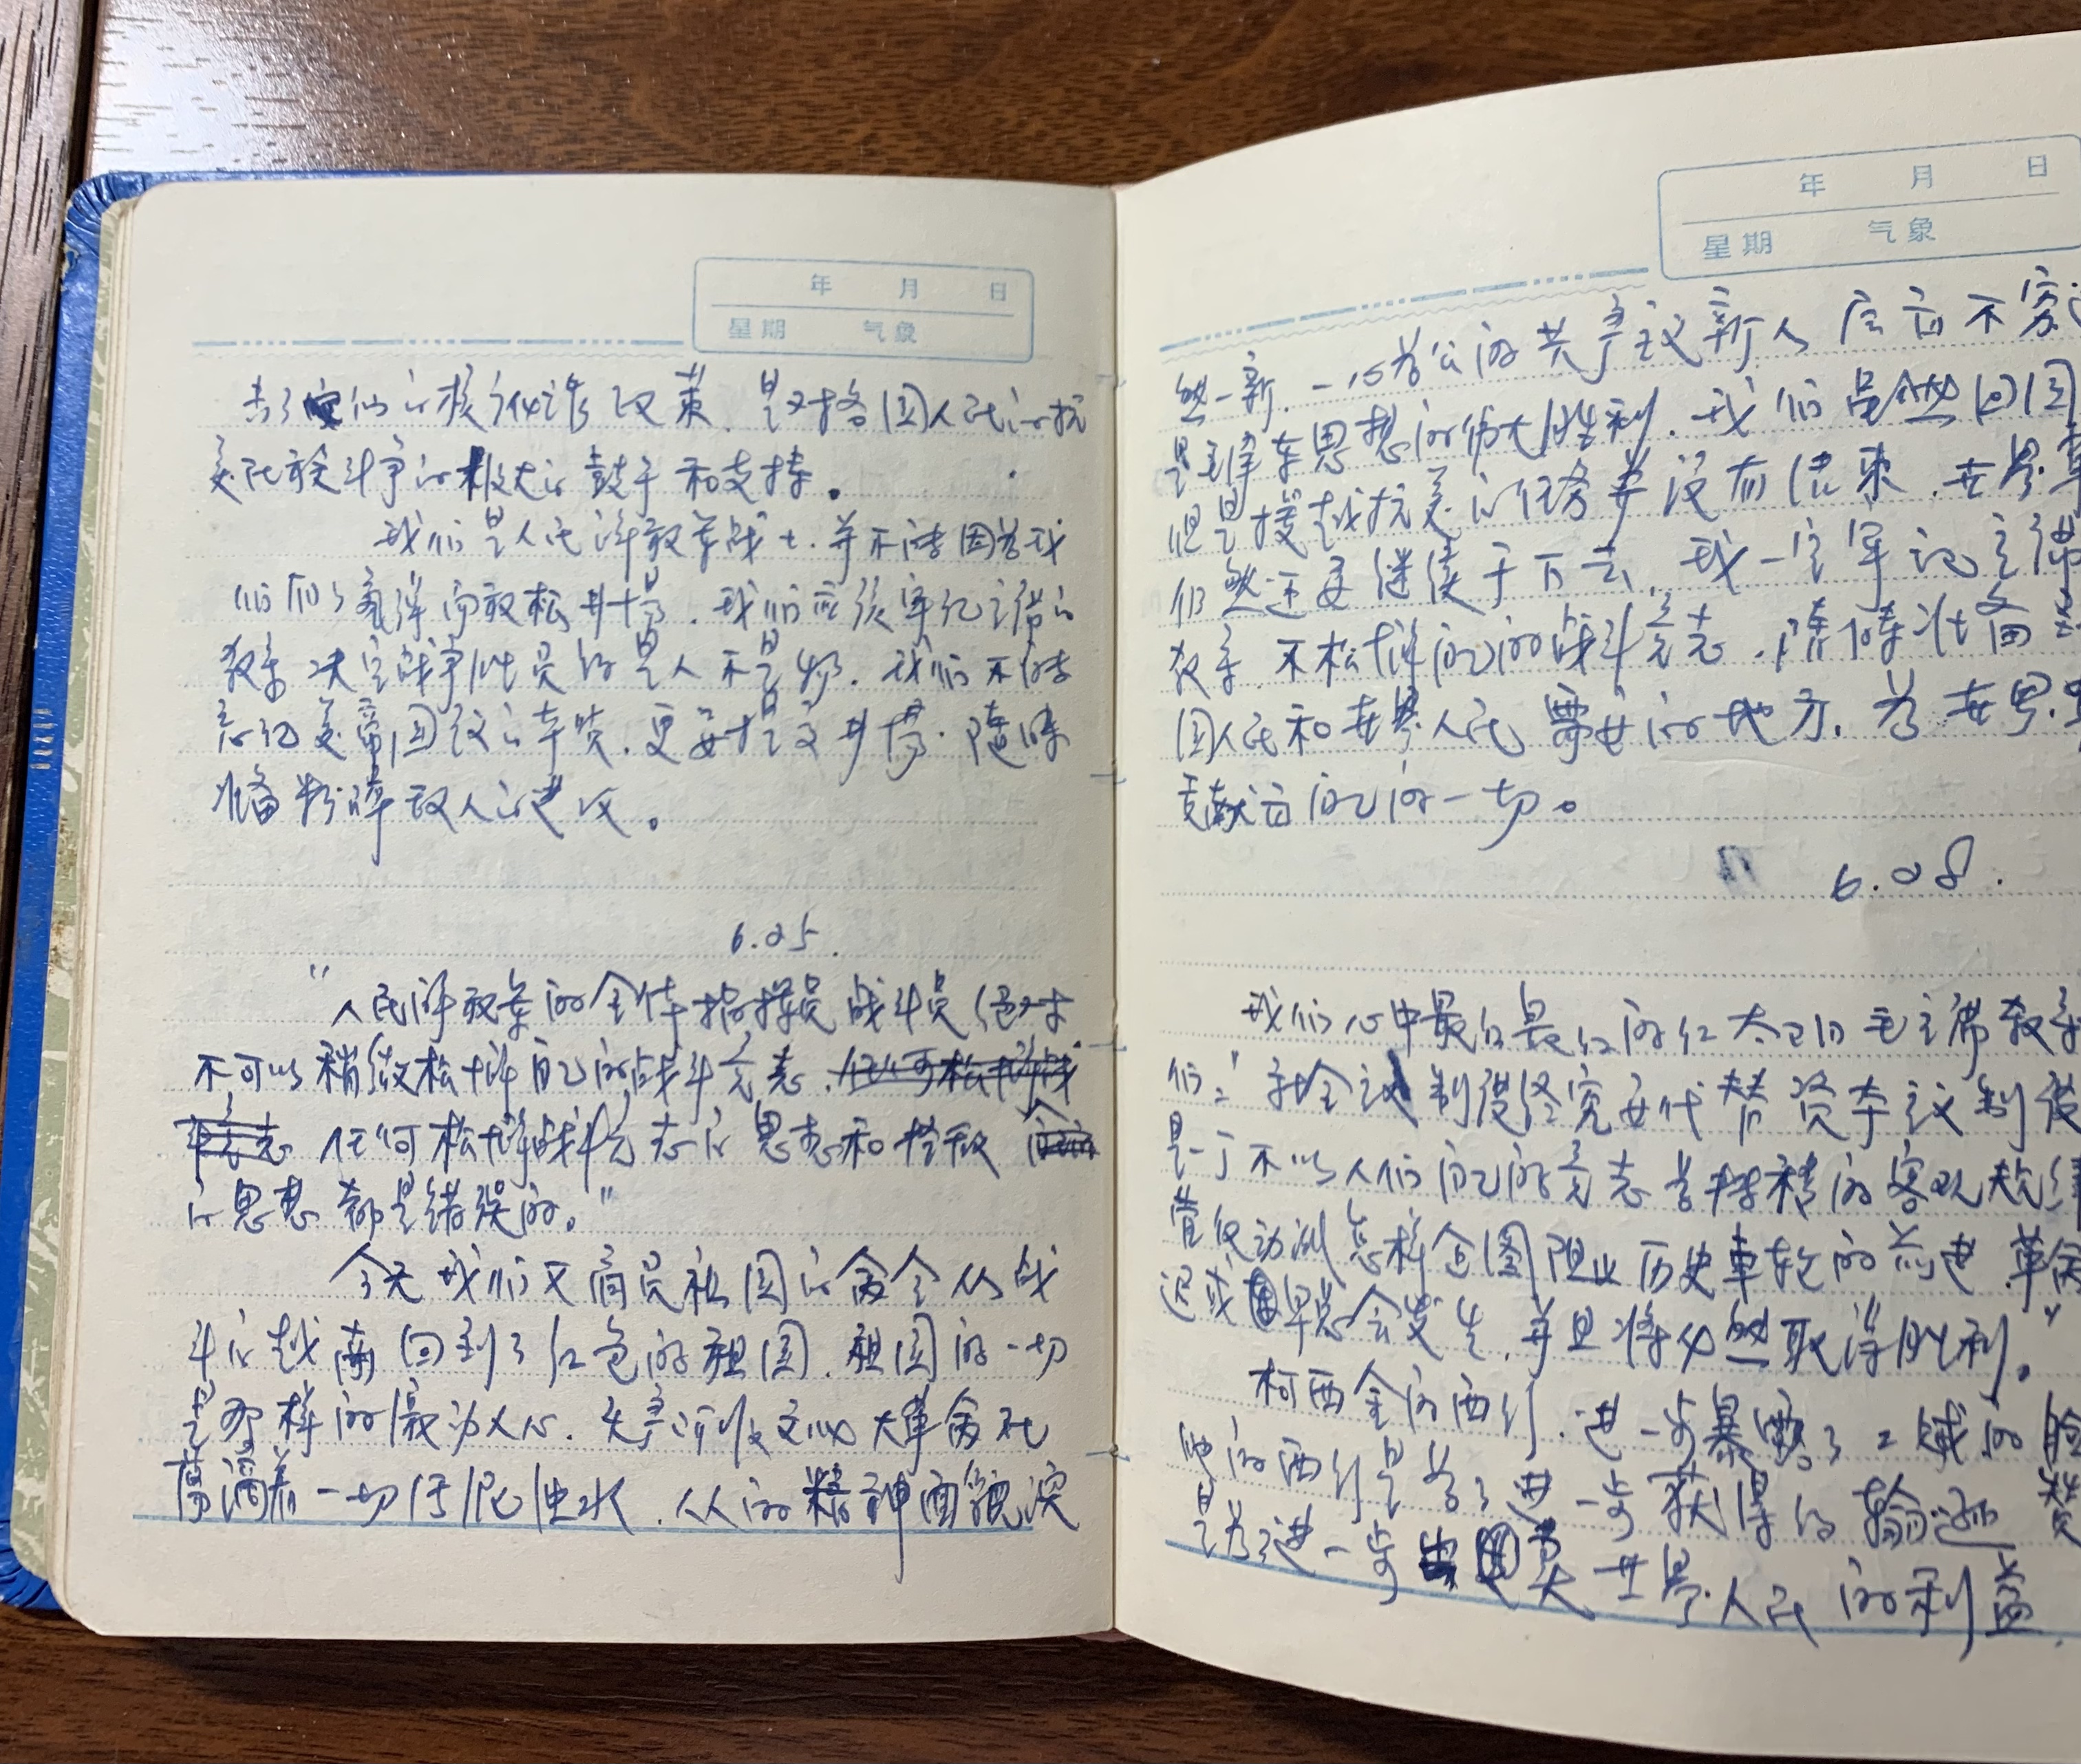 年 月 日
星期 气象
击了他们的核讹诈政策，是对各国人民的抗
美武装斗争的极大的鼓午和支持。
我们是人民解放军战士，并不能因为我
们有了氢弹而放松井惕，我们应该牢记主席的
教导 决定战争胜负的是人不是物，我们不能
忘记美帝国主义的本质，更要提高井惕，随时
准备粉碎敌人的进攻。
6.25.
"人民解放军的全体指挥员战斗员绝对
不可以稍微松懈自己的战斗意志，
任何松懈战斗意志的思想和轻敌
的思想都是错误的。"
今天我们又肩负祖国的命令从战
斗的越南回到了红色的祖国，祖国的一切
是那样的激动人心，无产阶级文化大革命在
荡涤着一切污泥浊水，人的精神面貌焕
年 月 日
星期 气象
然一新，一心为公的共产主义新人层出不穷
是毛泽东思想的伟大胜利，我们虽然回国
但是援越抗美的任务并没有结束，世界革
们然还要继续干下去，我一定牢记主席
教导，不松懈自己的战斗意志，随时准备
国人民和世界人民需要的地方，为世界
贡献出自己的一切。
6.28.
我们心中最红最红的红太阳毛主席教导
们："社会主义制度终究要代替资本主义制度
是一个不以人们自己的意志为转移的客观规律
管反动派怎样企图阻止历史车轮的前进，革命
迟或早总会发生，并且将必然取得胜利。"
柯西金的西行，进一步暴露了 的脸
他的西行是为了进一步获得约翰逊 赞
是为了进一步 卖世界人民的利益